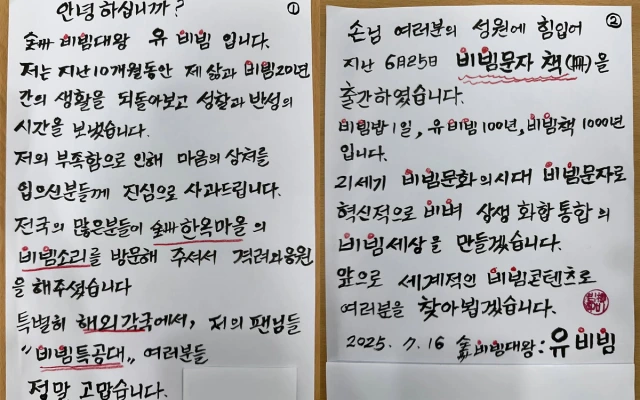 ①
안녕 하십니까?
비빔대왕 유 비빔 입니다.
저는 지난 10개월동안 제 삶과 비빔20년
간의 생활을 되돌아보고 성찰과 반성의
시간을 보냈습니다.
저의 부족함으로 인해 마음의 상처를
입으신분들께 진심으로 사과드립니다.
전국의 많은분들이 한옥마을의
비빔소리를 방문해 주셔서 격려와응원
을 해주셨습니다
특별히 해외각국에서, 저의 팬님들
"비빔특공대" 여러분들
정말 고맙습니다.
②
손님 여러분의 성원에 힘입어
지난 6月25日 비빔문자 책(冊)을
출간하였습니다.
비빔밥1일, 유비빔100년, 비빔책 1000년
입니다.
21세기 비빔문화의시대 비빔문자로
혁신적으로 비벼 상생 화합통합의
비빔세상을 만들겠습니다.
앞으로 세계적인 비빔콘텐츠로
여러분을 찾아뵙겠습니다.
2025. 7. 16 비빔대왕: 유 비빔